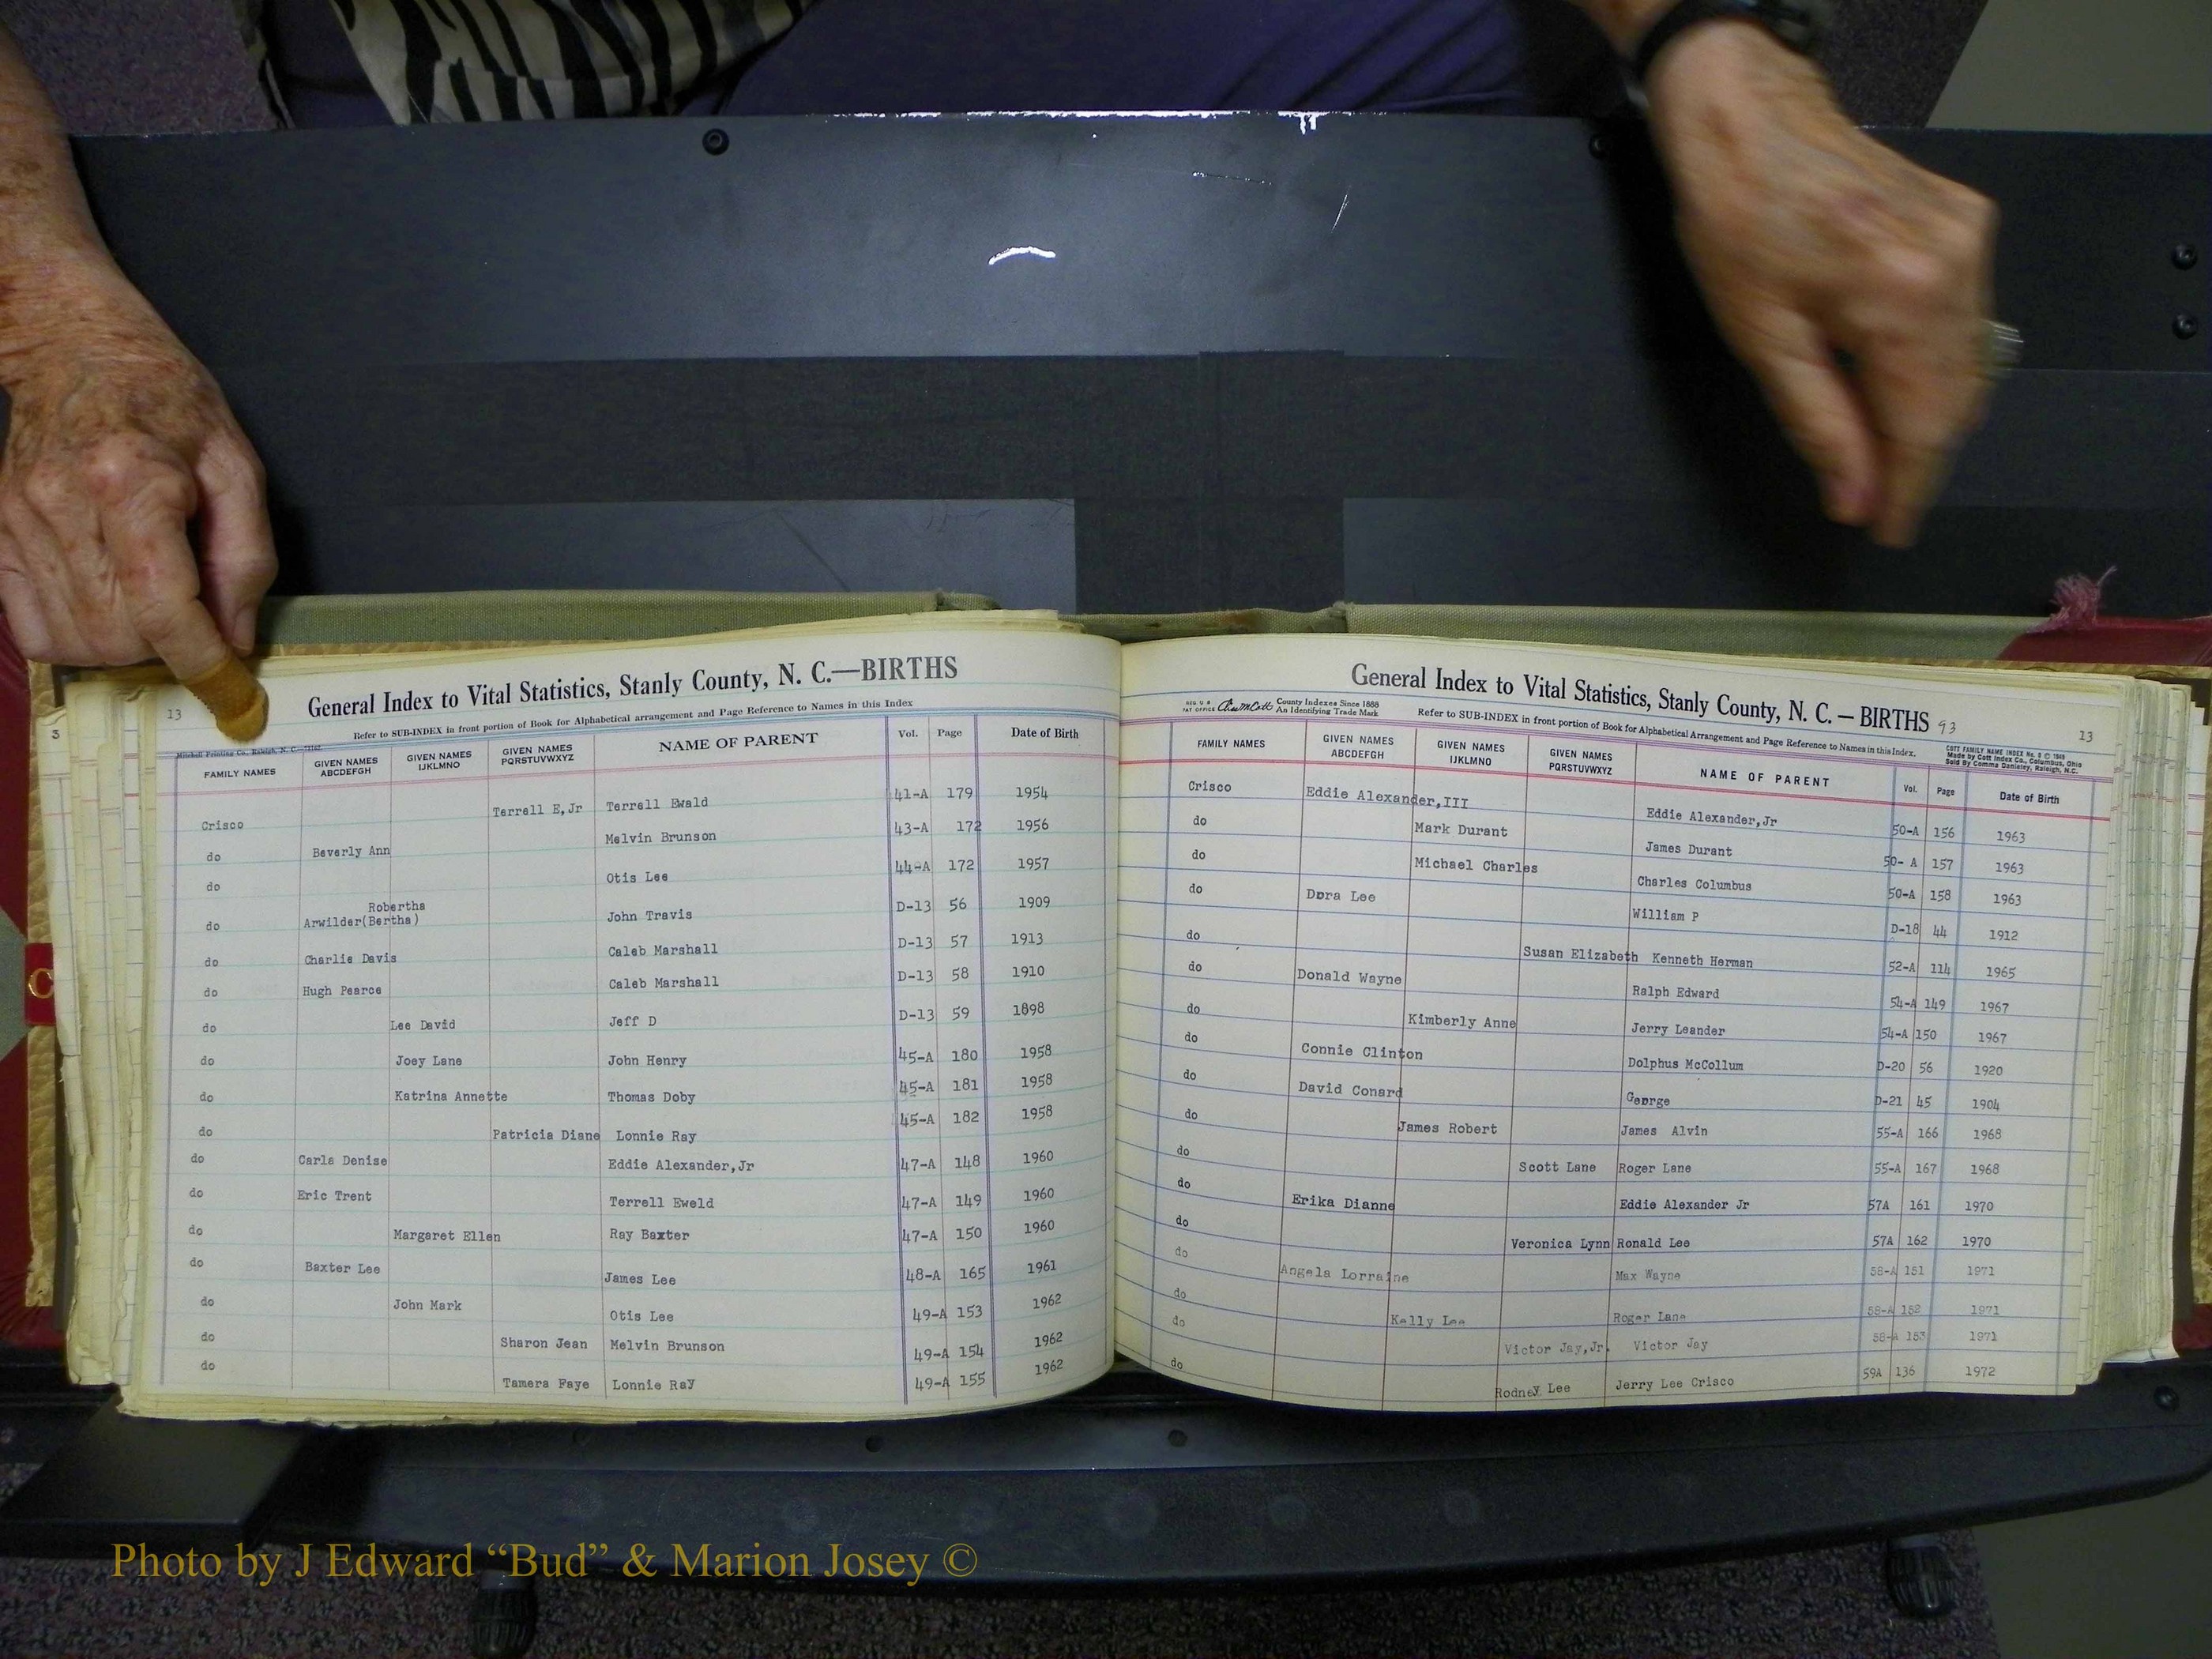 General Index to Vital Statistics, Stanly County, N. C.—BIRTHS
13
Refer to SUB-INDEX in front portion of Book for Alphabetical arrangement and Page Reference to Names in this Index
Mitchell Printing Co., Raleigh, N. C.
FAMILY NAMES GIVEN NAMES ABCDEFGH GIVEN NAMES IJKLMNO GIVEN NAMES PQRSTUVWXYZ NAME OF PARENT Vol. Page Date of Birth
Crisco Terrell E,Jr Terrell Ewald 41-A 179 1954
do Beverly Ann Melvin Brunson 43-A 172 1956
do Otis Lee 44-A 172 1957
Robertha
do Arwilder(Bertha) John Travis D-13 56 1909
do Charlie Davis Caleb Marshall D-13 57 1913
do Hugh Pearce Caleb Marshall D-13 58 1910
do Lee David Jeff D D-13 59 1898
do Joey Lane John Henry 45-A 180 1958
do Katrina Annette Thomas Doby 45-A 181 1958
do Patricia Diane Lonnie Ray 45-A 182 1958
do Carla Denise Eddie Alexander,Jr 47-A 148 1960
do Eric Trent Terrell Eweld 47-A 149 1960
do Margaret Ellen Ray Baxter 47-A 150 1960
do Baxter Lee James Lee 48-A 165 1961
do John Mark Otis Lee 49-A 153 1962
do Sharon Jean Melvin Brunson 49-A 154 1962
do Tamera Faye Lonnie Ray 49-A 155 1962
C
3
General Index to Vital Statistics, Stanly County, N. C. — BIRTHS 93
REG. U. S. PAT OFFICE County Indexes Since 1888 An Identifying Trade Mark
Refer to SUB-INDEX in front portion of Book for Alphabetical Arrangement and Page Reference to Names in this Index.
13
COTT FAMILY NAME INDEX
Made by Cott Index Co., Columbus, Ohio
Raleigh, N.C.
FAMILY NAMES GIVEN NAMES ABCDEFGH GIVEN NAMES IJKLMNO GIVEN NAMES PQRSTUVWXYZ NAME OF PARENT Vol. Page Date of Birth
Crisco Eddie Alexander,III Eddie Alexander,Jr 50-A 156 1963
do Mark Durant James Durant 50-A 157 1963
do Michael Charles Charles Columbus 50-A 158 1963
do Dora Lee William P D-18 44 1912
do Susan Elizabeth Kenneth Herman 52-A 114 1965
do Donald Wayne Ralph Edward 54-A 149 1967
do Kimberly Anne Jerry Leander 54-A 150 1967
do Connie Clinton Dolphus McCollum D-20 56 1920
do David Conard George D-21 45 1904
do James Robert James Alvin 55-A 166 1968
do Scott Lane Roger Lane 55-A 167 1968
do Erika Dianne Eddie Alexander Jr 57A 161 1970
do Veronica Lynn Ronald Lee 57A 162 1970
do Angela Lorraine Max Wayne 58-A 151 1971
do Kelly Lee Roger Lane 58-A 1971
do Victor Jay,Jr. Victor Jay 58-A 153 1971
do Rodney Lee Jerry Lee Crisco 59A 136 1972
Photo by J Edward “Bud” & Marion Josey ©